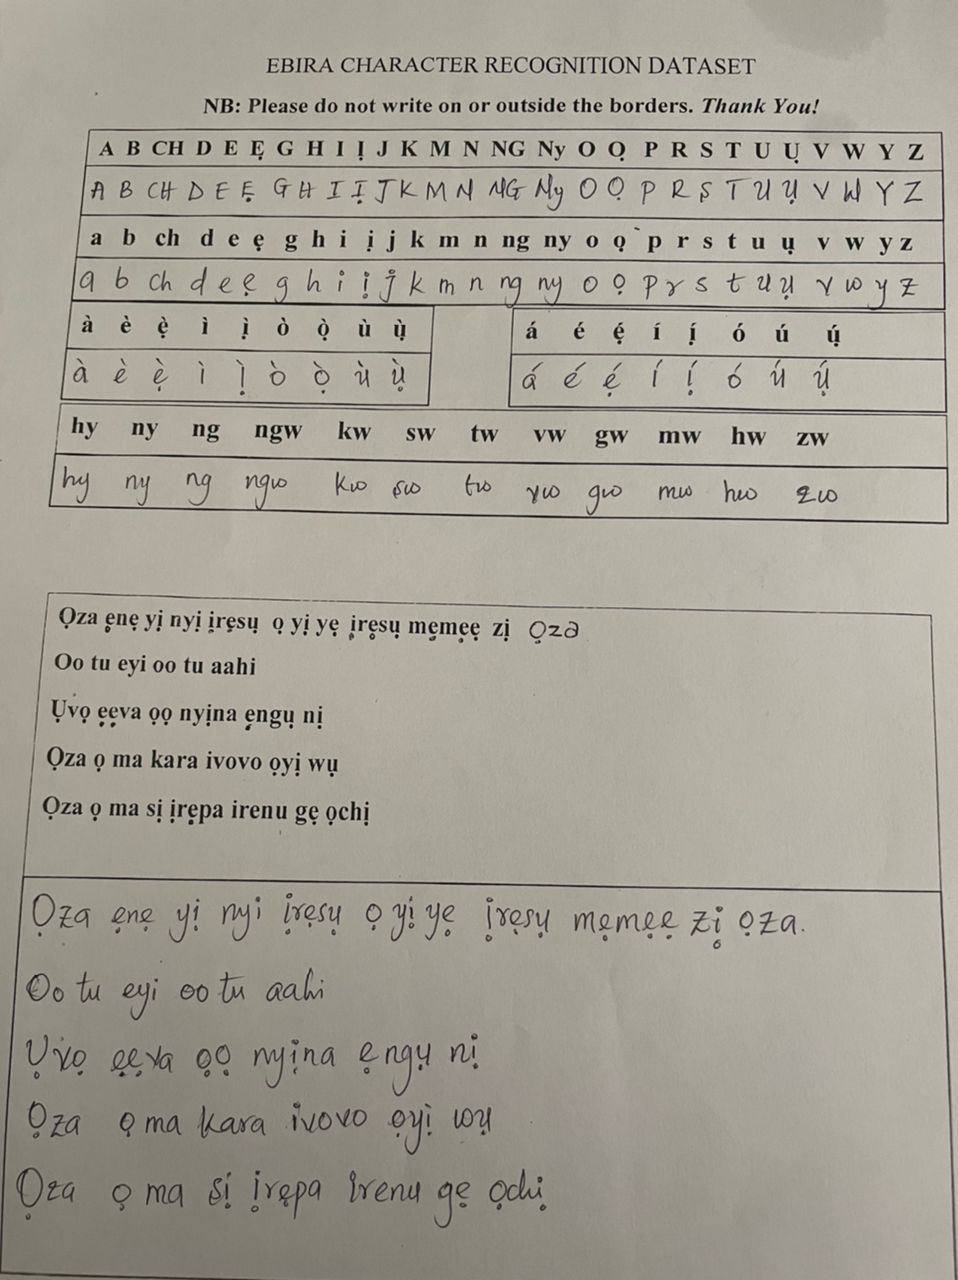 EBIRA CHARACTER RECOGNITION DATASET
NB: Please do not write on or outside the borders. Thank You!
A B CH D E Ẹ G H I Ị J K M N NG Ny O Ọ P R S T U Ụ V W Y Z
A B CH D E Ẹ G H I Ị J K M N NG Ny O Ọ P R S T U Ụ V W Y Z
a b ch d e ẹ g h i ị j k m n ng ny o ọ p r s t u ụ v w y z
a b ch d e ẹ g h i ị j k m n ng ny o ọ p r s t u ụ v w y z
à è ẹ̀ ì ị̀ ò ọ̀ ù ụ̀ á é ẹ́ í ị́ ó ú ụ́
à è ẹ̀ ì ị̀ ò ọ̀ ù ụ̀ á é ẹ́ í ị́ ó ú ụ́
hy ny ng ngw kw sw tw vw gw mw hw zw
hy ny ng ngw kw sw tw vw gw mw hw zw
Ọza ẹnẹ yị nyị ịrẹsụ ọ yị yẹ ịrẹsụ mẹmẹẹ zị Ọza
Oo tu eyi oo tu aahi
Ụvọ ẹẹva ọọ nyịna ẹngụ nị
Ọza ọ ma kara ivovo ọyị wụ
Ọza ọ ma sị ịrẹpa irenu gẹ ọchị
Ọza ẹnẹ yị nyi ịrẹsụ ọ yị yẹ ịrẹsụ mẹmẹẹ zị ọza.
Oo tu eyi oo tu aahi
Ụvọ ẹẹva ọọ nyịna ẹngụ nị
Ọza ọ ma kara ivovo ọyị wụ
Ọza ọ ma sị ịrẹpa irenu gẹ ọchị